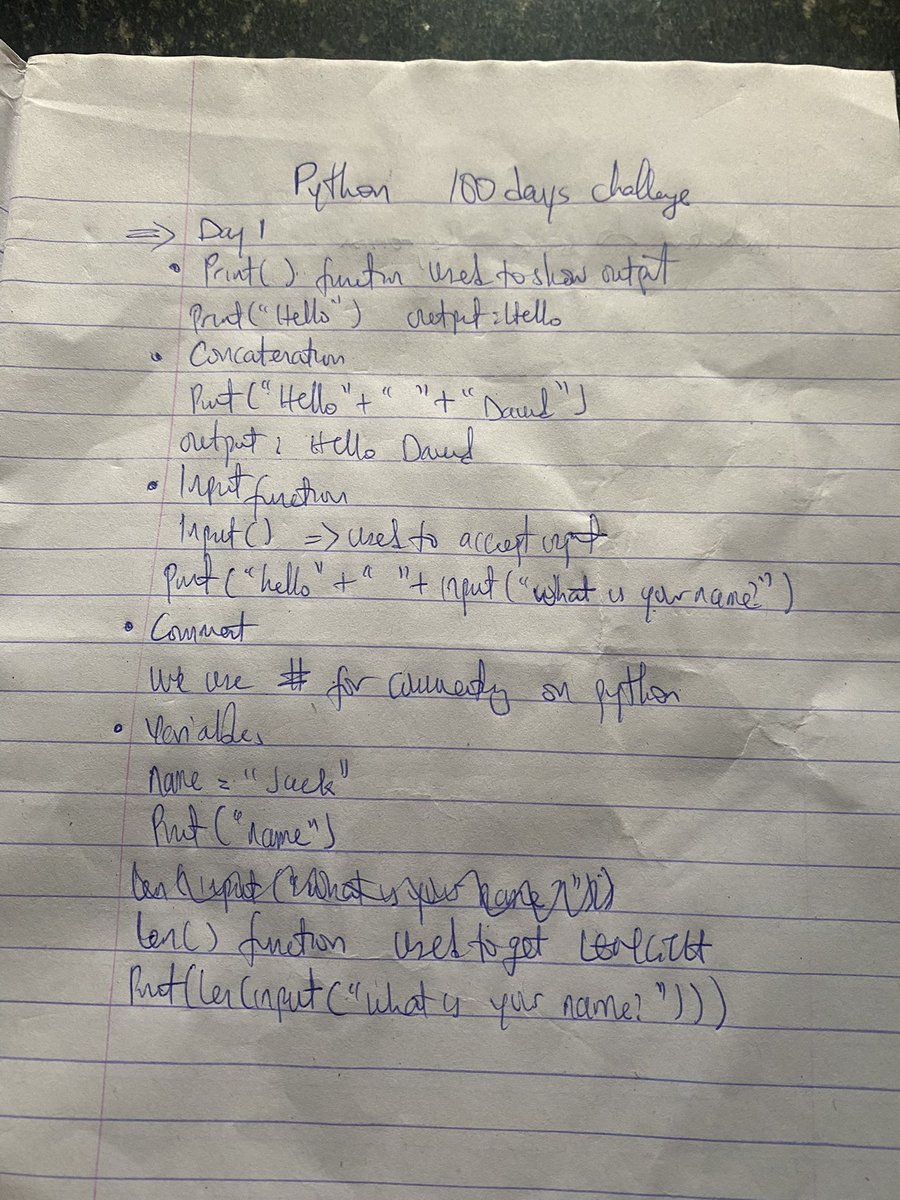 Python 100 days challenge
⇒ Day 1
• Print() function used to show output
Print("Hello") output: Hello
• Concatenation
Print("Hello"+" "+"David")
output: Hello David
• Input function
Input() => used to accept input
Print("hello"+" "+input("what is your name?")
• Comment
We use # for commenting on python
• Variables
name = "Jack"
Print("name")
len(input("What is your name?"))
len() function used to get
Print(len(input("what is your name?")))